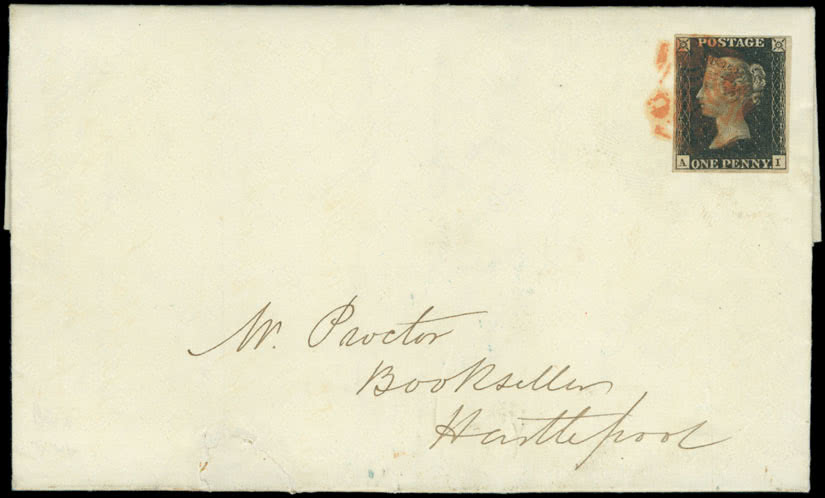 POSTAGE
A ONE PENNY. I
Mr. Proctor
Bookseller
Hartlepool